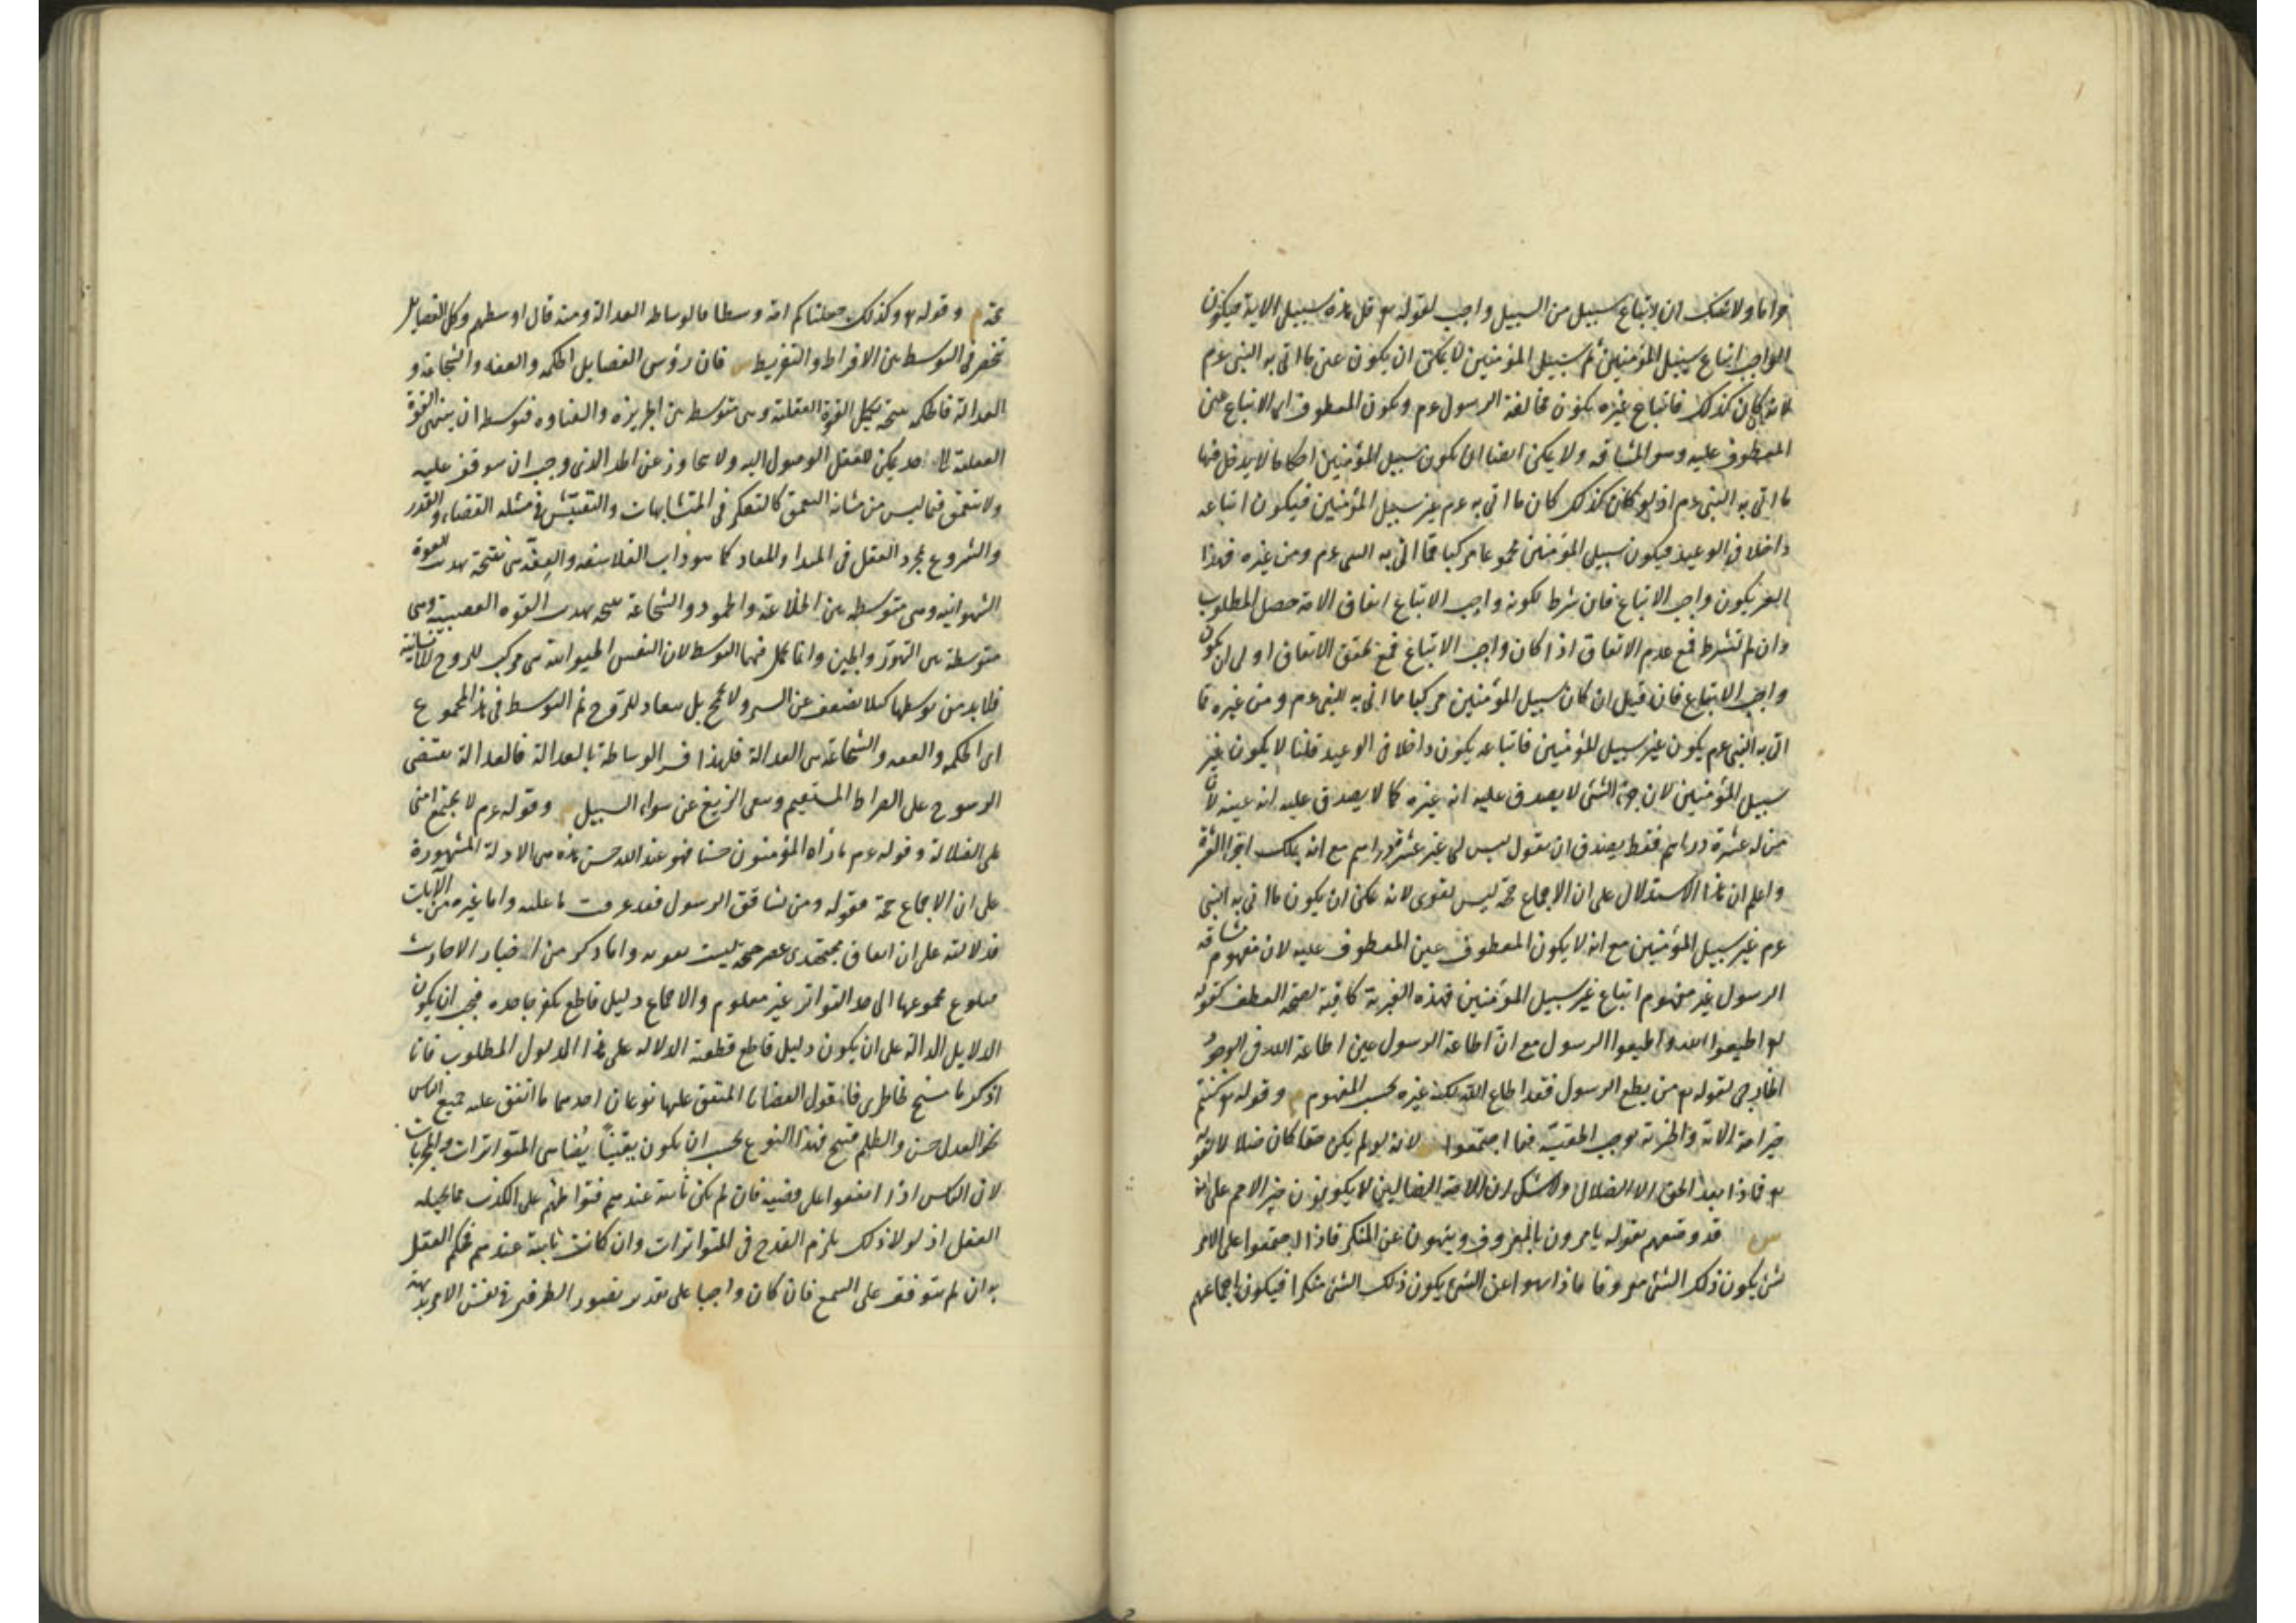 حراما ولا شك ان اتباع سبيل من السبيل واجب لقوله تع قل هذه سبيلى الاية فيكون
الواجب اتباع سبيل المؤمنين ثم سبيل المؤمنين لا يمكن ان يكون عين ما اتى به النبى عم
لانه لو كان كذلك فاتباع غيره يكون مخالفة الرسول عم ويكون المعطوف اى الاتباع عين
المعطوف عليه وهو المشاقه ولا يمكن ايضا ان يكون سبيل المؤمنين احكاما لا يدخل فيها
ما اتى به النبى عم اذ لو كان كذلك كان ما اتى به عم غير سبيل المؤمنين فيكون اتباعه
داخلا فى الوعيد فيكون سبيل المؤمنين مجموعا مركبا مما اتى به النبى عم ومن غيره فهذا
الغير يكون واجب الاتباع فان شرط لكونه واجب الاتباع اتفاق الامة حصل المطلوب
وان لم تشترط فمع عدم الاتفاق اذا كان واجب الاتباع فمع تحقق الاتفاق اولى ان يكون
واجب الاتباع فان قيل ان كان سبيل المؤمنين مركبا مما اتى به النبى عم ومن غيره فما
اتى به النبى عم يكون غير سبيل المؤمنين فاتباعه يكون داخلا فى الوعيد قلنا لا يكون غير
سبيل المؤمنين لان جزء الشئ لا يصدق عليه انه غيره كما لا يصدق عليه انه عينه لان
من له عشرة دراهم فقط يصدق ان يقول ليس لى غير عشرة دراهم مع انه يملك اجزا العشرة
واعلم ان هذا الاستدلال على ان الاجماع حجة ليس بقوى لانه يمكن ان يكون ما اتى به النبى
عم غير سبيل المؤمنين مع انه لا يكون المعطوف عين المعطوف عليه لان مفهوم مشاقة
الرسول غير مفهوم اتباع غير سبيل المؤمنين فهذه الغيرية كافية لصحة العطف كقوله
تع اطيعوا الله واطيعوا الرسول مع ان اطاعة الرسول عين اطاعة الله فى الوجود
الخارجى لقوله تع من يطع الرسول فقد اطاع الله لكنه غيره بحسب المفهوم م وقوله تع كنتم
خير امة الاية والخيرية توجب الحقية فيما اجتمعوا لانه لو لم يكن حقا كان ضلالا لقوله
تع فماذا بعد الحق الا الضلال ولا شك ان الامة الضالين لا يكونون خير الامم على انه
س قد وصفهم بقوله يامرون بالمعروف وينهون عن المنكر فاذا اجتمعوا على الامر
بشئ يكون ذلك الشئ معروفا فاذا نهوا عن الشئ يكون ذلك الشئ منكرا فيكون اجماعهم
حجة م وقوله تع وكذلك جعلناكم امة وسطا فالوساطه العدالة ومنه قال اوسطهم وكل الفضايل
تنحصر فى التوسط بين الافراط والتفريط س فان رؤس الفضايل الحكمه والعفه والشجاعة و
العدالة فالحكمه نتيجة تكميل القوة العقلية وهى متوسطة بين الجربزه والغباوه فتوسطه ان ينتهى القوة
العقلية الى حد يمكن للعقل الوصول اليه ولا يتجاوز عن الحد الذى وجب ان يتوقف عليه
ولا يتعمق فيما ليس من شانه التعمق كالتفكر فى المتشابهات والتفتيش فى مسئلة القضاء والقدر
والشروع بمجرد العقل فى المبدا والمعاد كما هو داب الفلاسفه والعفة هى نتيجة تهذيب القوة
الشهوانيه وهى متوسطه بين الخلاعة والخمود والشجاعة نتيجه تهذيب القوه الغضبية وهى
متوسطة بين التهور والجبن وانما يحمل فيها التوسط لان النفس الحيوانية هى مركب للروح الانسانية
فلا بد من توسطها كيلا تضعف عن السير ولا تجمح بل تنقاد للروح ثم التوسط فى هذا المجموع
اى الحكمه والعفه والشجاعة هى العدالة فلهذا فسر الوساطة بالعدالة فالعدالة تقتضى
الرسوخ على الصراط المستقيم ونفى الزيغ عن سواء السبيل م وقوله عم لا يجتمع امتى
على الضلالة وقوله عم ما راه المؤمنون حسنا فهو عند الله حسن هذه هى الادلة المشهورة
على ان الاجماع حجة فقوله ومن يشاقق الرسول فقد عرفت ما عليه واما غيره من الآيات
فدلالته على ان اتفاق مجتهدى عصر حجة ليست بقويه واما ذكر من اخبار الاحاد
فبلوغ مجموعها الى حد التواتر غير معلوم والاجماع دليل قاطع يكفر جاحده فيجب ان يكون
الدلايل الدالة على ان يكون دليل قاطع قطعية الدلاله على هذا المدلول المطلوب فانا
اذكر ما سنح بخاطرى فانقول القضايا المتفق عليها نوعان احدهما ما اتفق عليه جميع الناس
نحو العدل حسن والظلم قبيح فهذا النوع يجب ان يكون يقينيا يضاهى المتواترات والمجربات
لان الناس اذا اتفقوا على قضيه فان لم تكن ثابتة عندهم فتواطئهم على الكذب مما يحيله
العقل اذ لولا ذلك يلزم القدح فى المتواترات وان كانت ثابتة عندهم فحكم العقل
به ان لم يتوقف على السمع فان كان واجبا على تقدير تصور الطرفين فى نفس الامر بديهة